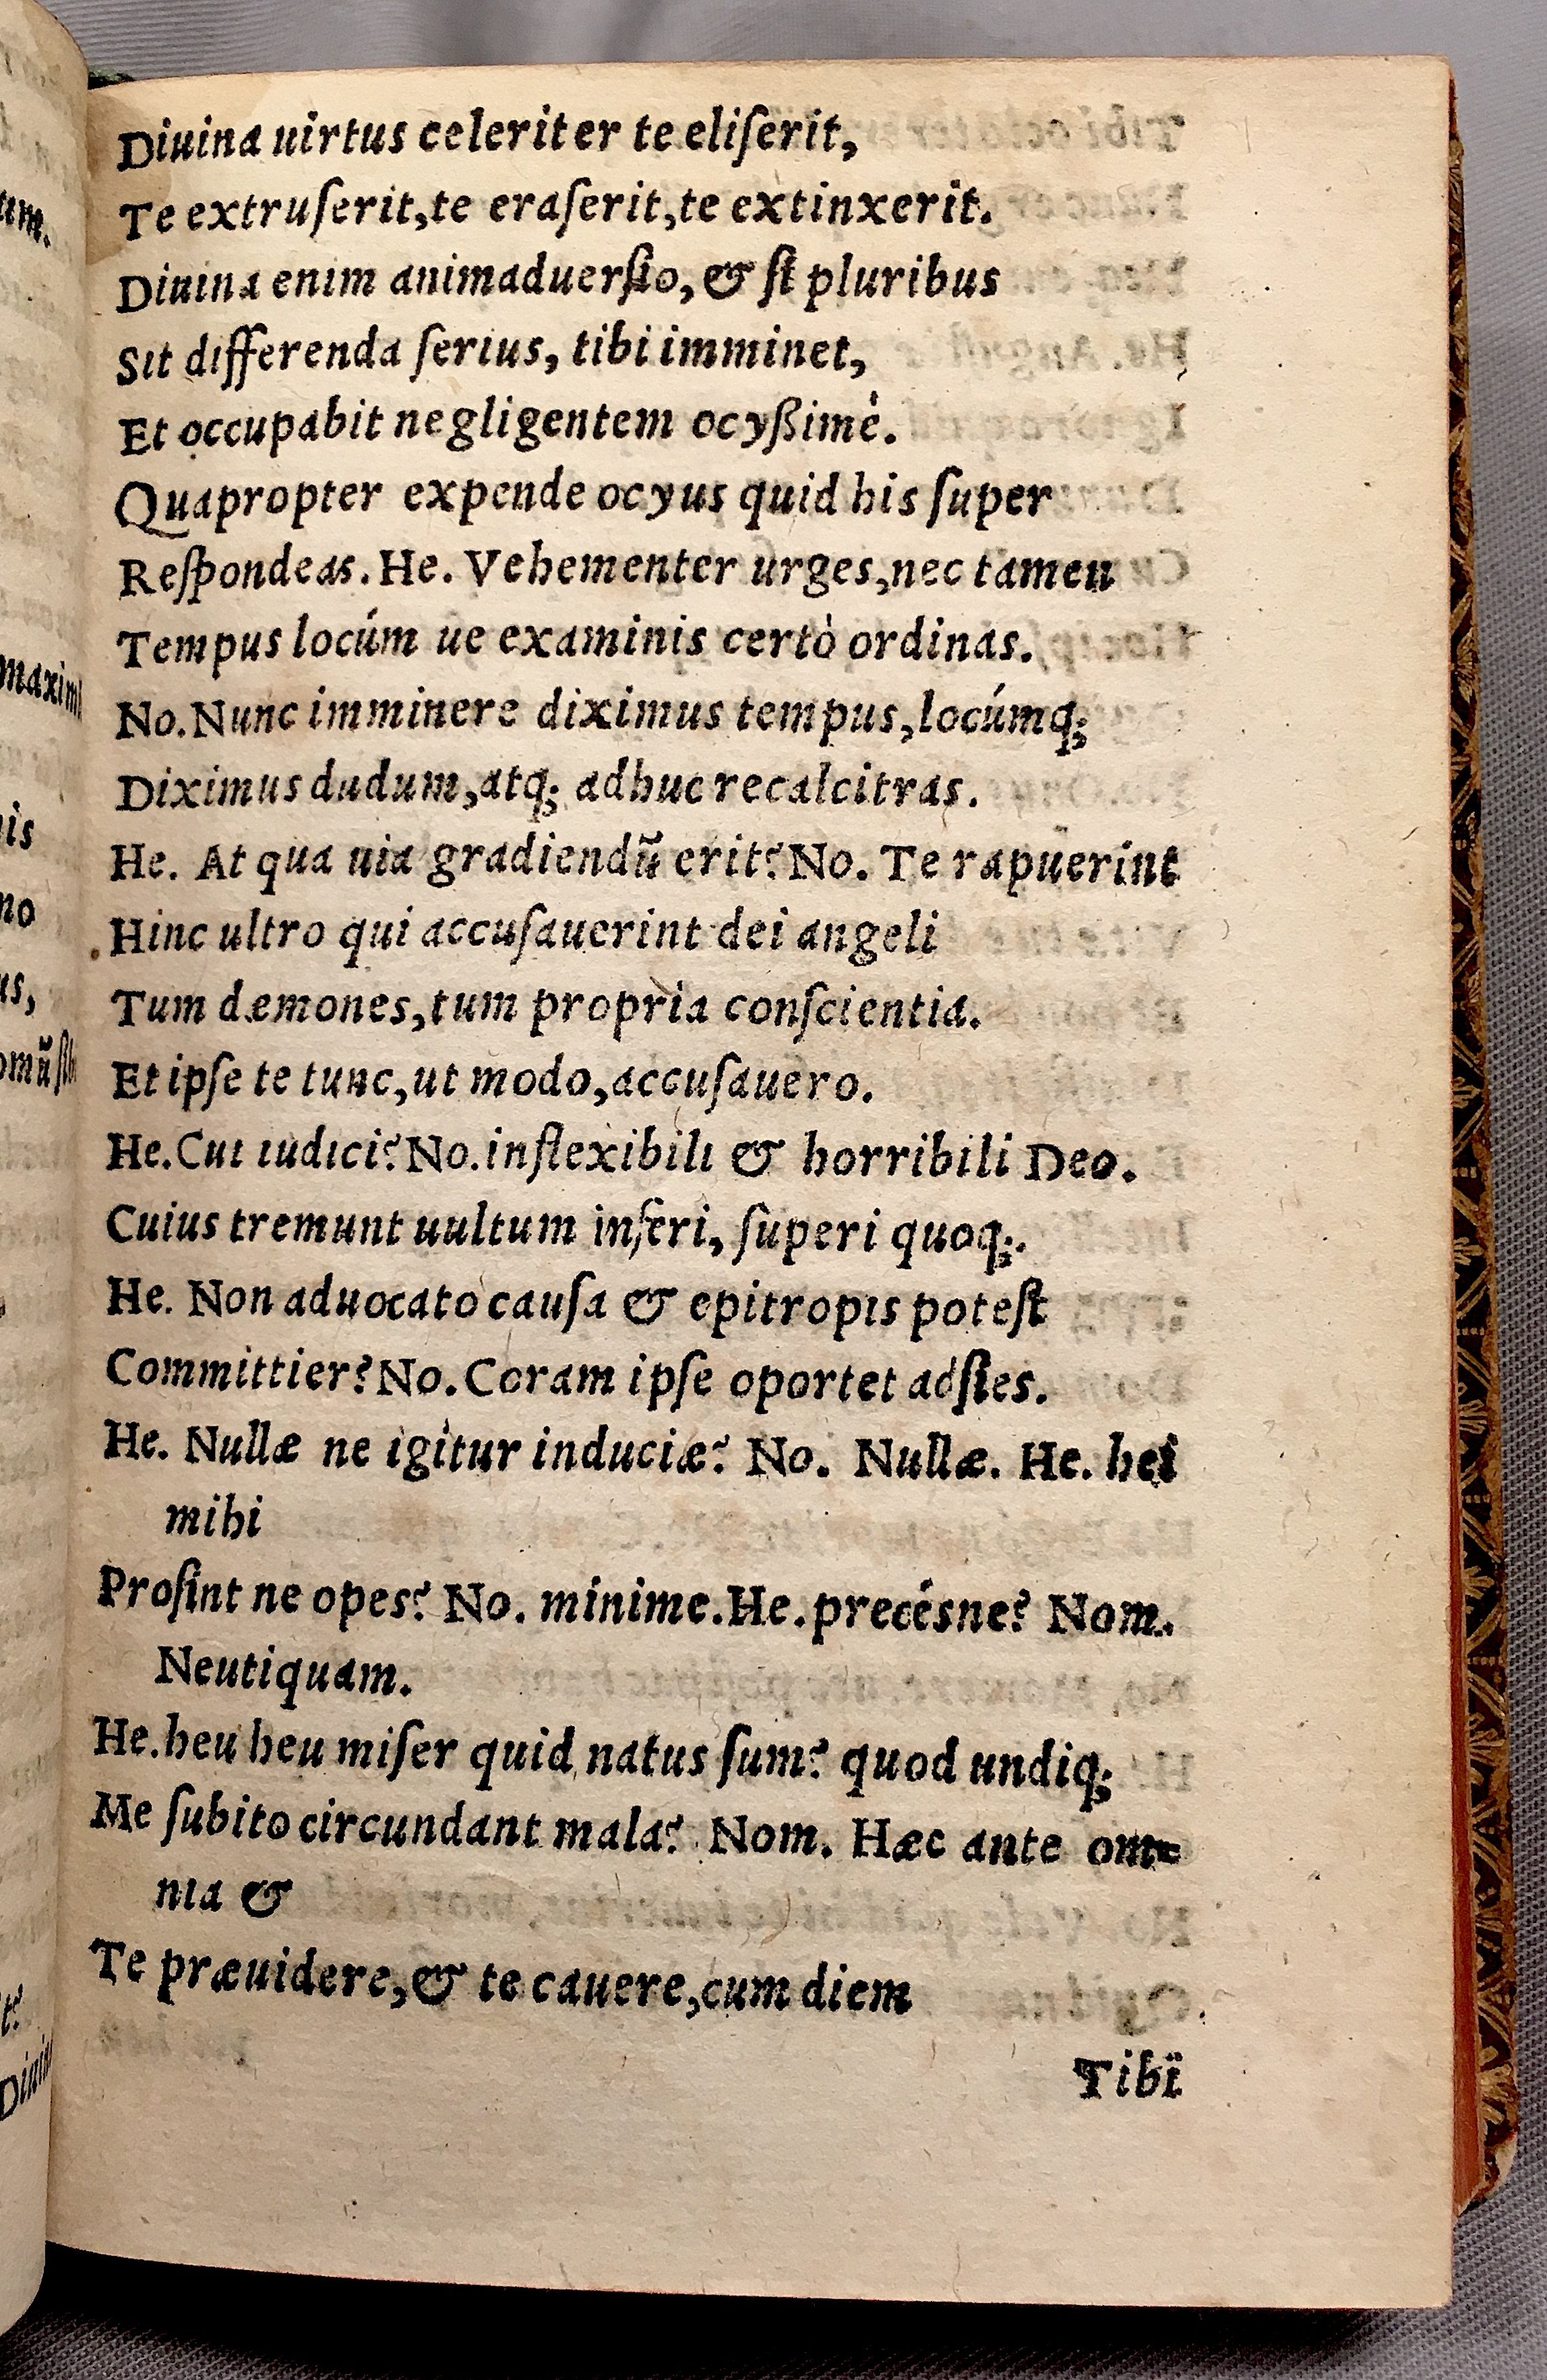 Diuina uirtus celeriter te eliſerit,
Te extruſerit,te eraſerit,te extinxerit.
Diuina enim animaduerſio, & ſi pluribus
Sit differenda ſerius, tibi imminet,
Et occupabit negligentem ocyßimè.
Quapropter expende ocyus quid his ſuper
Reſpondeas. He. Vehementer urges,nec tamen
Tempus locúm ue examinis certò ordinas.
No. Nunc imminere diximus tempus,locúmq;
Diximus dudum,atq; adhuc recalcitras.
He. At qua uia gradiendũ erit? No. Te rapuerint
Hinc ultro qui accuſauerint dei angeli
Tum dæmones,tum propria conſcientia.
Et ipſe te tunc,ut modo,accuſauero.
He. Cui iudici? No. inflexibili & horribili Deo.
Cuius tremunt uultum inferi, ſuperi quoq;.
He. Non aduocato cauſa & epitropis poteſt
Committier? No. Coram ipſe oportet adſies.
He. Nullæ ne igitur induciæ? No. Nullæ. He. hei
mihi
Proſint ne opes? No. minime. He. precésne? Nom.
Neutiquam.
He. heu heu miſer quid natus ſum? quod undiq;
Me ſubito circundant mala? Nom. Hæc ante om=
nia &
Te præuidere,& te cauere,cum diem
Tibi